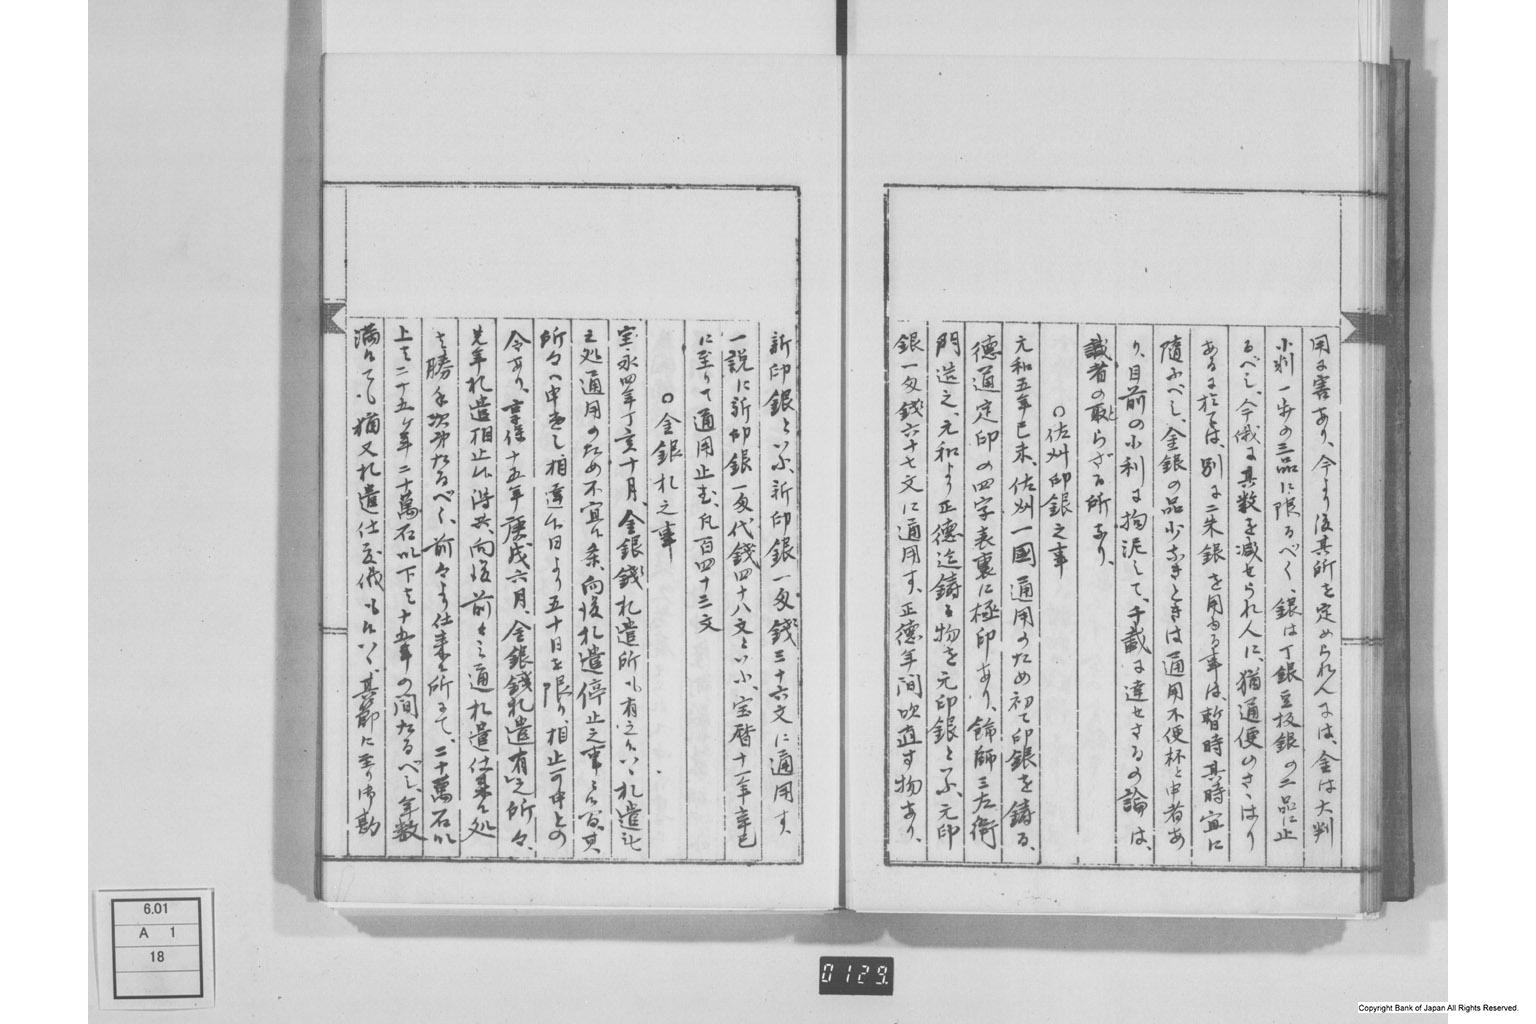 用に害あり、今より後其所を定められんには、金は大判
小判一歩の三品に限るべく、銀は丁銀豆板銀の二品に止
るべし、今俄に其数を減せられんに、猶通便のさはり
あるに於ては、別に二朱銀を用ゐる事は、暫時其時宜に
随ふべし、金銀の品少なきときは通用不便杯と申者あ
り、目前の小利に拘泥して、千載に達せさるの論は、
識者の取らざる所なり、
○佐州印銀之事
元和五年己未、佐州一國通用のため初て印銀を鋳る、
徳通定印の四字表裏に極印あり、錺師三左衛
門造之、元和より正徳迄鋳る物を元印銀と云、元印
銀一匁銭六十七文に通用す、正徳年間吹直す物あり、
新印銀といふ、新印銀一匁銭三十六文に通用す
一説に新印銀一匁代銭四十八文といふ、宝暦十一年辛巳
に至りて通用止む、凡百四十三文
○金銀札之事
宝永四年丁亥十月、金銀銭札遣所も有之候、札遣
之処通用のため不宜候条、向後札遣停止之事に候間、其
所々へ申遣し相達候日より五十日を限り、相止可申との
令あり、享保十五年庚戌六月、金銀銭札遣有之所々、
先年札遣相止候得共向後前々之通札遣仕来候処
は勝手次第たるべく、前々より仕来候所にて、二十萬石以
上は二十五ヶ年二十萬石以下は十五年の間たるべし、年数
満候ても猶又札遣仕度儀も候はゝ、其節に至り御勘
6.01
A 1
18
0129.
Copyright Bank of Japan All Rights Reserved.